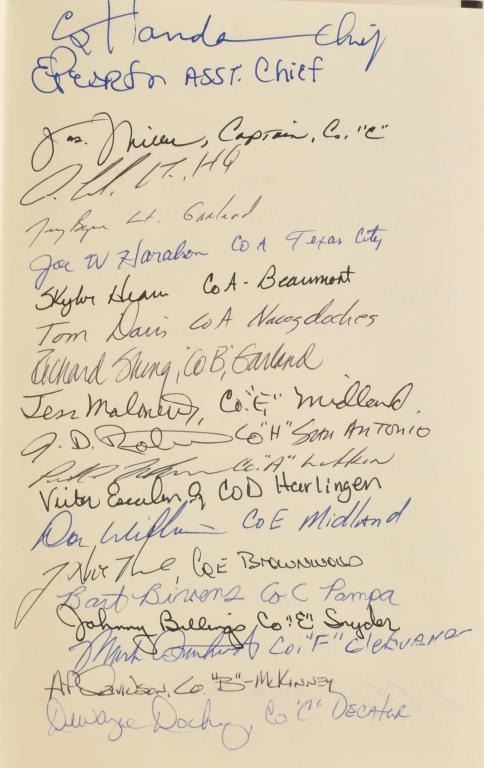 Chief
ASST. Chief
Jas. Miller, Captain, Co. "C"
Lt., HQ
Lt. Garland
Joe W Haralson Co A Texas City
Skylor Hearn Co A - Beaumont
Tom Davis Co A Nacogdoches
Richard Shing, Co B, Garland
Jess Malone, Co. "E," Midland
J. D. Co "H" San Antonio
Co. "A" Lufkin
Victor Escalon Jr CO D Harlingen
Don Williams CoE Midland
CoE Brownwood
Bart Bivens Co C Pampa
Johnny Billings Co "E" Snyder
Mark Co. "F" Cleburne
AP Davidson, Co. "B" - McKinney
Dewayne Dockery, Co "C" Decatur